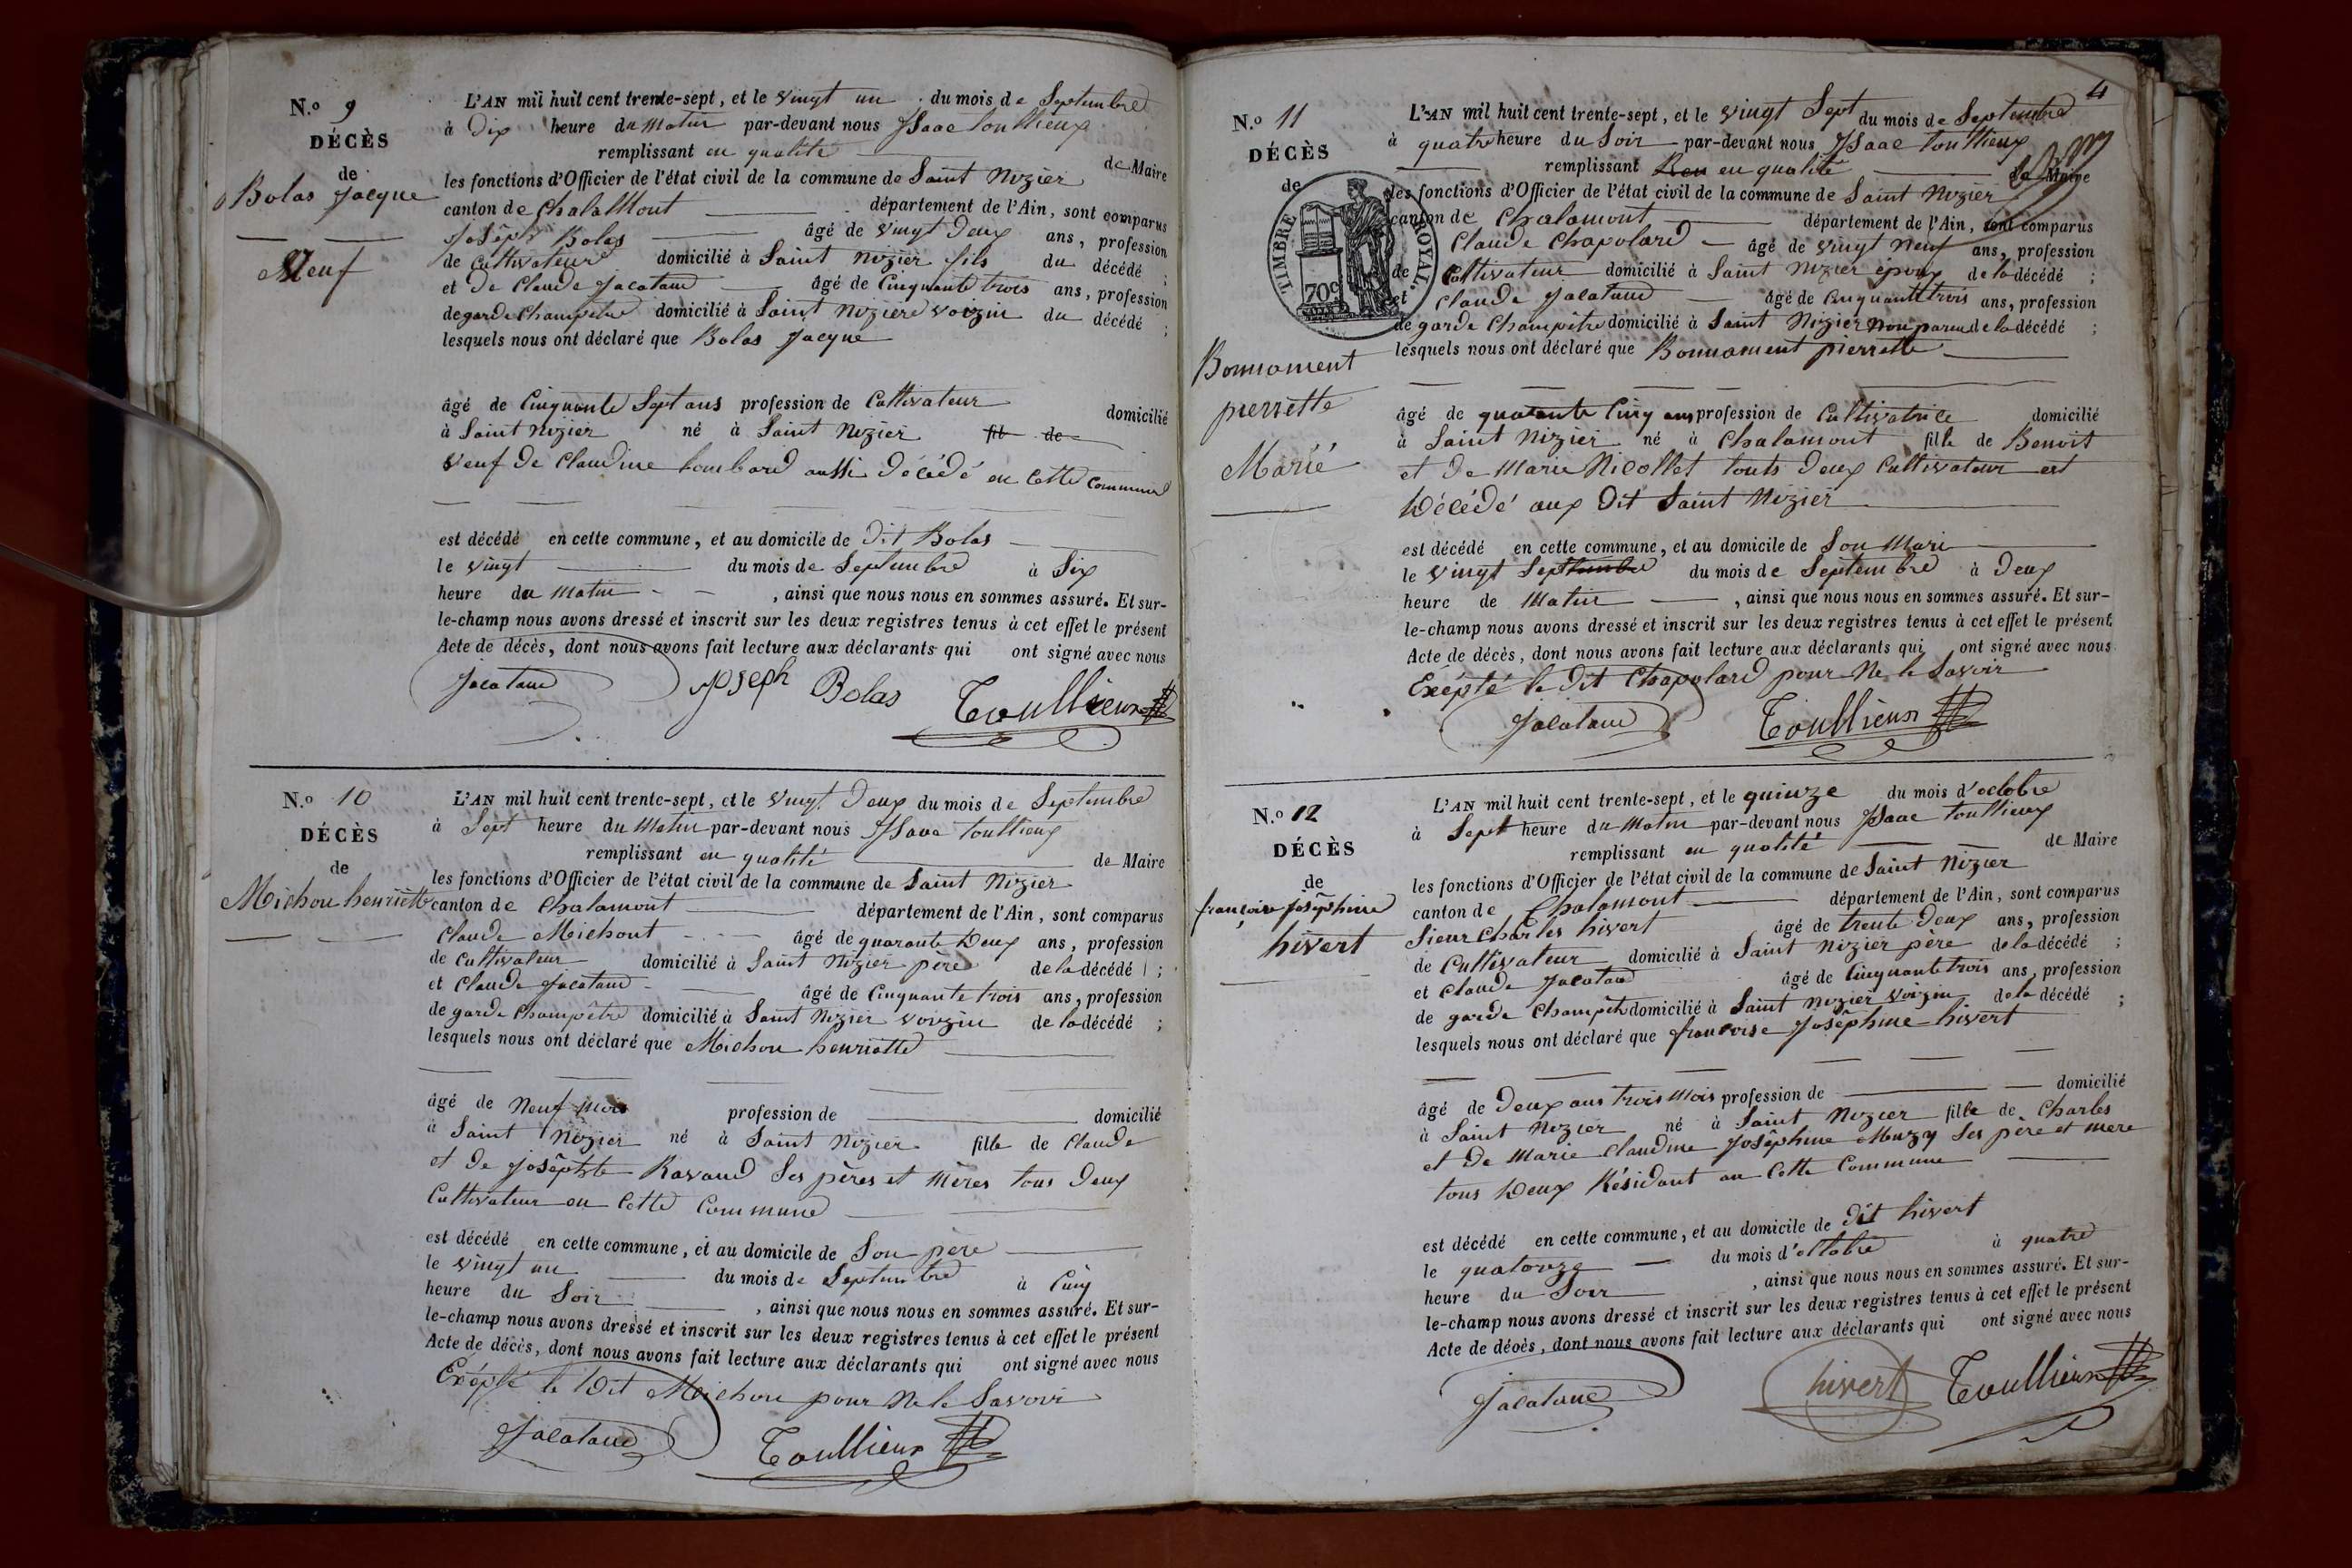 N.o 9
DÉCÈS
de
Bolas Jacque
Veuf
L'AN mil huit cent trente-sept, et le vingt un du mois de Septembre
à Dix heure du Matin par-devant nous Isaac toullieux
remplissant en qualité de Maire
les fonctions d'Officier de l'état civil de la commune de Saint Nizier
canton de Chalamont département de l'Ain, sont comparus
Joseph Bolas âgé de vingt Deux ans, profession
de Cultivateur domicilié à Saint Nizier fils du décédé ;
et De Claude Jacataud âgé de Cinquante trois ans, profession
de garde Champêtre domicilié à Saint Niziere voizin du décédé ;
lesquels nous ont déclaré que Bolas Jacque
âgé de Cinquante Sept ans profession de Cultivateur domicilié
à Saint Nizier né à Saint Nizier fil de
veuf De Claudine Lombard aussi Décédé en Cette Commune
est décédé en cette commune, et au domicile de Dit Bolas
le vingt du mois de Septembre à Six
heure du Matin , ainsi que nous nous en sommes assuré. Et sur-
le-champ nous avons dressé et inscrit sur les deux registres tenus à cet effet le présent
Acte de décès, dont nous avons fait lecture aux déclarants qui ont signé avec nous
Jacataud Joseph Bolas Toullieux
N.o 10
DÉCÈS
de
Michon henriette
L'AN mil huit cent trente-sept, et le vingt Deux du mois de Septembre
à Sept heure du Matin par-devant nous Isaac toullieux
remplissant en qualité de Maire
les fonctions d'Officier de l'état civil de la commune de Saint Nizier
canton de Chalamont département de l'Ain, sont comparus
Claude Michont âgé de quarante Deux ans, profession
de Cultivateur domicilié à Saint Nizier père de la décédé ;
et Claude Jacataud âgé de Cinquante trois ans, profession
de garde Champêtre domicilié à Saint Nizier voizin de la décédé ;
lesquels nous ont déclaré que Michon henriette
âgé de Neuf mois profession de domicilié
à Saint Nizier né à Saint Nizier fille de Claude
et De Josephte Ravaud Ses pères et Mères tous Deux
Cultivateur en Cette Commune
est décédé en cette commune, et au domicile de Son père
le vingt un du mois de Septembre à Cinq
heure du Soir , ainsi que nous nous en sommes assuré. Et sur-
le-champ nous avons dressé et inscrit sur les deux registres tenus à cet effet le présent
Acte de décès, dont nous avons fait lecture aux déclarants qui ont signé avec nous
Exépté le Dit Michon pour Ne le Savoir
Jacataud Toullieux
4
N.o 11
DÉCÈS
de
TIMBRE ROYAL.
70c
Bonnament
pierrette
Marié
L'AN mil huit cent trente-sept, et le vingt Sept du mois de Septembre
à quatre heure du Soir par-devant nous Isaac toullieux
remplissant en qualité de Maire
les fonctions d'Officier de l'état civil de la commune de Saint Nizier
canton de Chalamont département de l'Ain, sont comparus
Claude Chapolard âgé de vingt Neuf ans, profession
de Cultivateur domicilié à Saint Nizier époux de la décédé ;
et Claude Jacataud âgé de Cinquante trois ans, profession
de garde Champêtre domicilié à Saint Nizier non parent de la décédé ;
lesquels nous ont déclaré que Bonnament pierrette
âgé de quarante Cinq ans profession de Cultivatrice domicilié
à Saint Nizier né à Chalamont fille de Benoit
et De Marie Nicollet touts Deux Cultivateur est
Décédé aux Dit Saint Nizier
est décédé en cette commune, et au domicile de Son Mari
le vingt Septembre du mois de Septembre à Deux
heure de Matin , ainsi que nous nous en sommes assuré. Et sur-
le-champ nous avons dressé et inscrit sur les deux registres tenus à cet effet le présent
Acte de décès, dont nous avons fait lecture aux déclarants qui ont signé avec nous
Exépté le Dit Chapolard pour Ne le Savoir
Jacataud Toullieux
N.o 12
DÉCÈS
de
françoise Joséphine
hivert
L'AN mil huit cent trente-sept, et le quinze du mois d'octobre
à Sept heure du Matin par-devant nous Isaac toullieux
remplissant en qualité de Maire
les fonctions d'Officier de l'état civil de la commune de Saint Nizier
canton de Chalamont département de l'Ain, sont comparus
Sieur Charles hivert âgé de trente Deux ans, profession
de Cultivateur domicilié à Saint Nizier père de la décédé ;
et Claude Jacataud âgé de Cinquante trois ans, profession
de garde Champêtre domicilié à Saint Nizier voizin de la décédé ;
lesquels nous ont déclaré que francoise Joséphine hivert
âgé de Deux ans trois Mois profession de domicilié
à Saint Nizier né à Saint Nizier fille de Charles
et De Marie Claudine Joséphine Muzy Ses père et mere
tous Deux Résidant en Cette Commune
est décédé en cette commune, et au domicile de Dit hivert
le quatorze du mois d'octobre à quatre
heure du Soir , ainsi que nous nous en sommes assuré. Et sur-
le-champ nous avons dressé et inscrit sur les deux registres tenus à cet effet le présent
Acte de décès, dont nous avons fait lecture aux déclarants qui ont signé avec nous
Jacataud hivert Toullieux